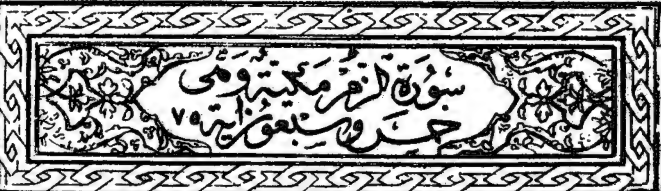 سُورَةُ الزُّمَرِ مَكِّيَّةٌ وَهِيَ
خمس وسبعون آية ٧٥